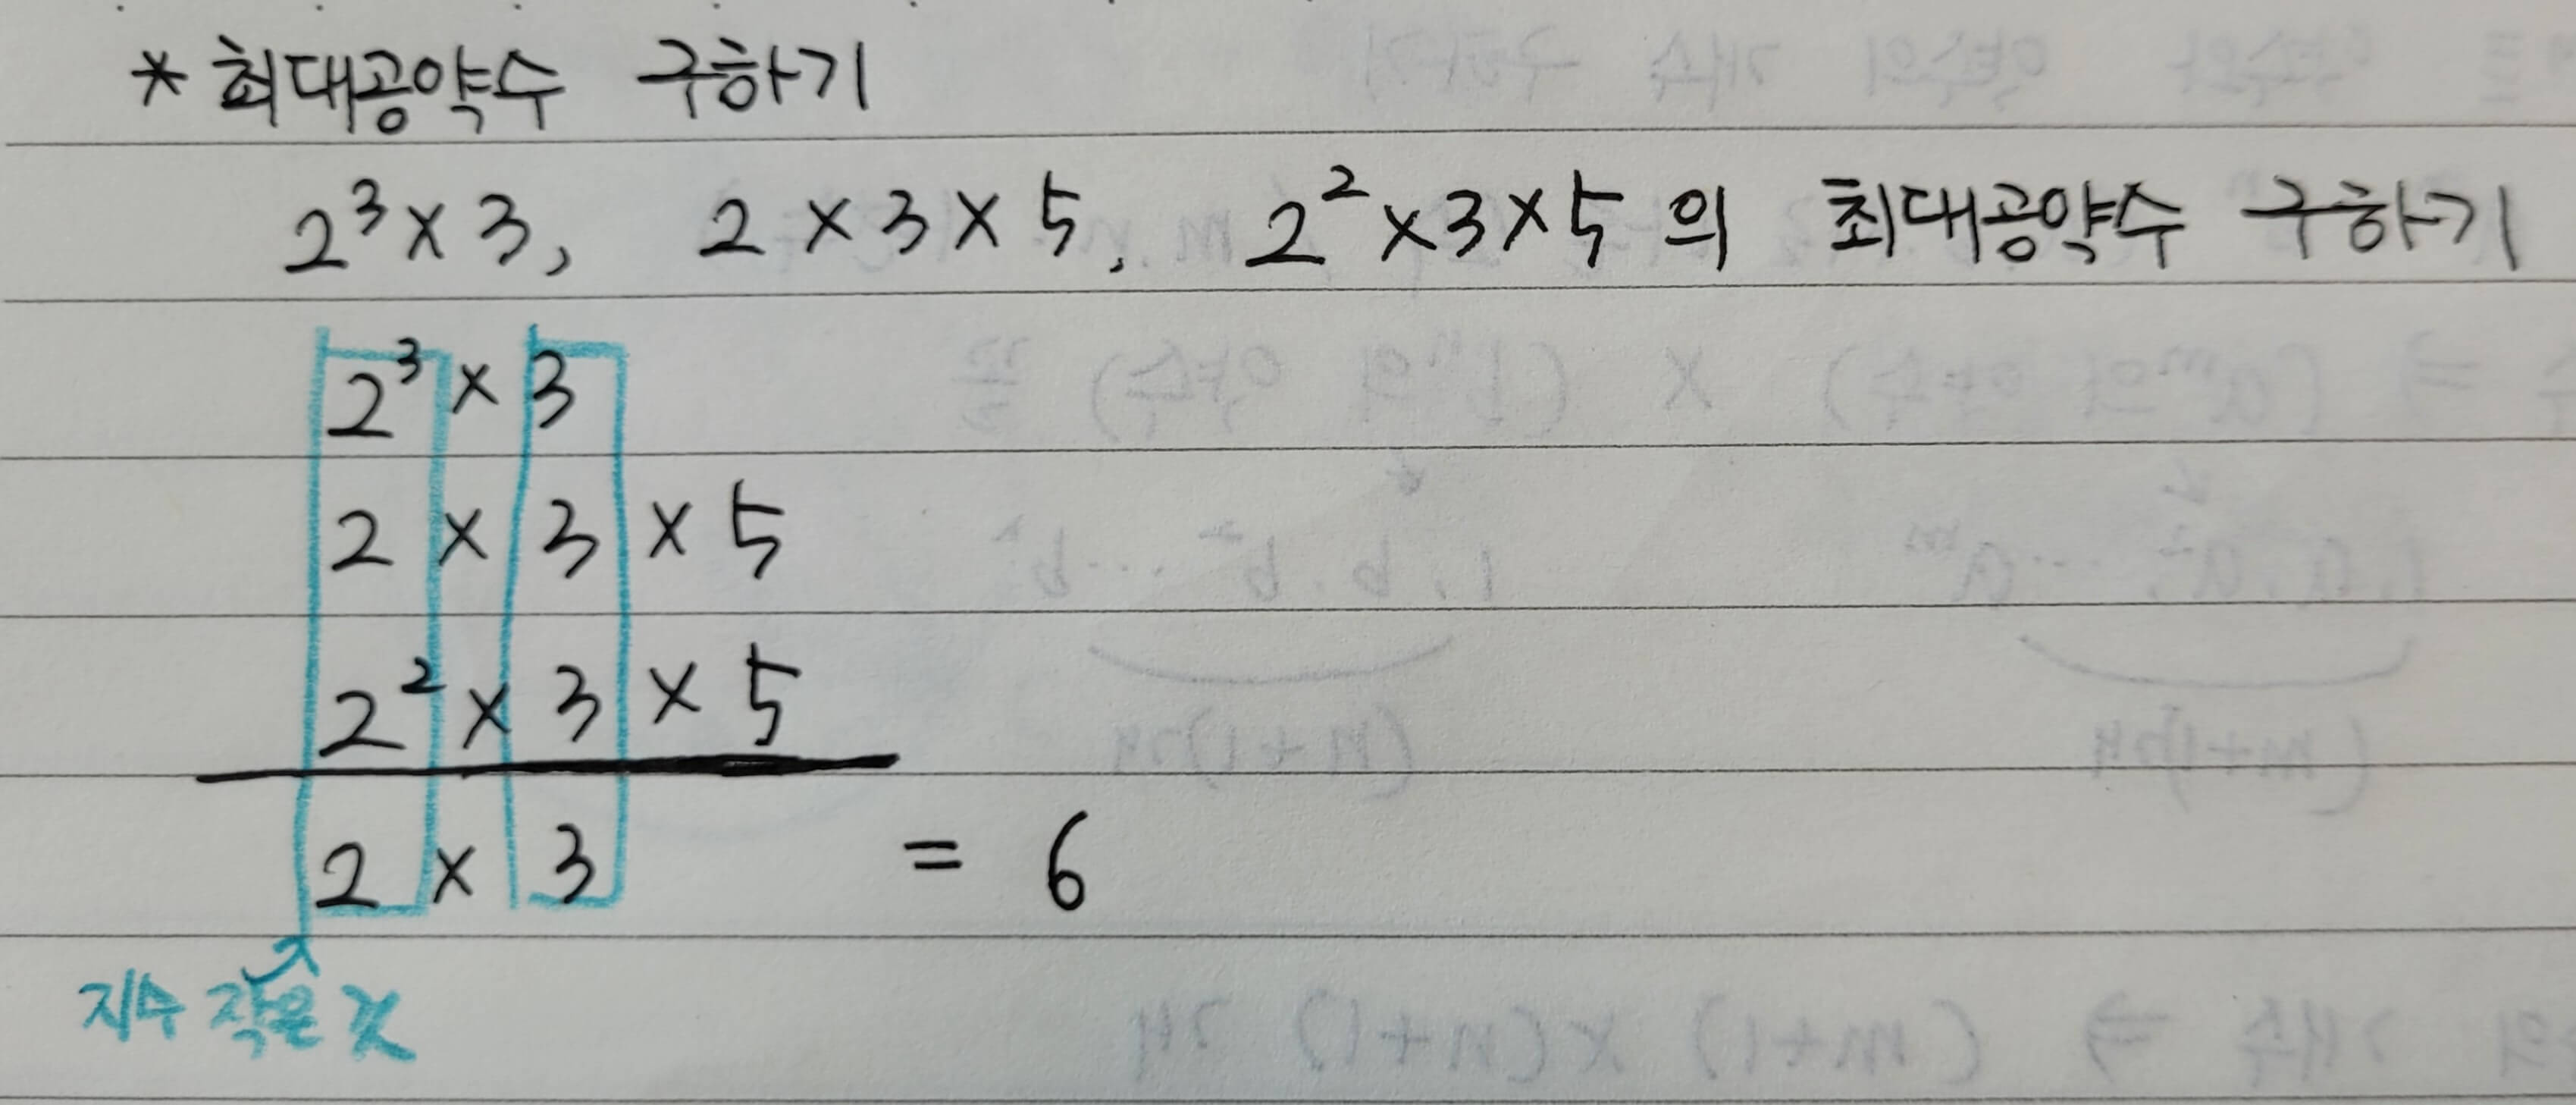 * 최대공약수 구하기
2³×3, 2×3×5, 2²×3×5의 최대공약수 구하기
2³×3
2×3×5
2²×3×5
2×3 = 6
지수 작은 것